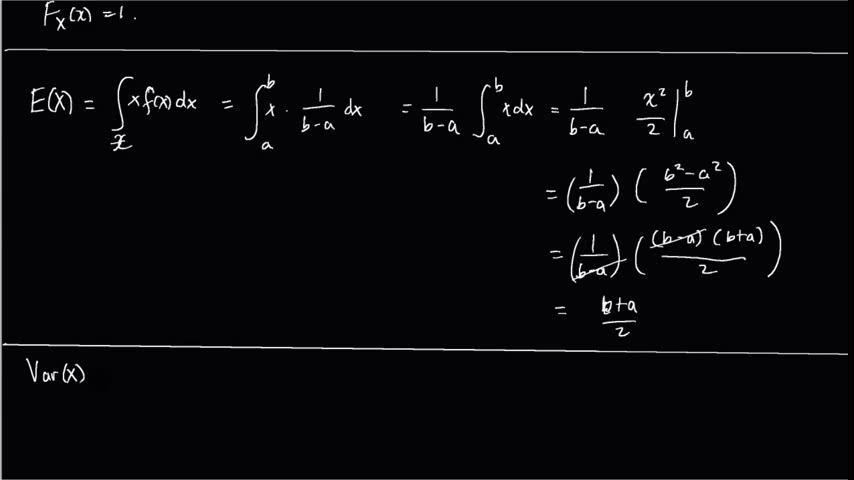 F_X(x) = 1.
E(X) = ∫_𝒳 x f(x) dx = ∫_a^b x · 1/(b-a) dx = 1/(b-a) ∫_a^b x dx = 1/(b-a) x²/2 |_a^b
= (1/(b-a)) ((b²-a²)/2)
= (1/(b-a)) ((b-a)(b+a)/2)
= (b+a)/2
Var(x)